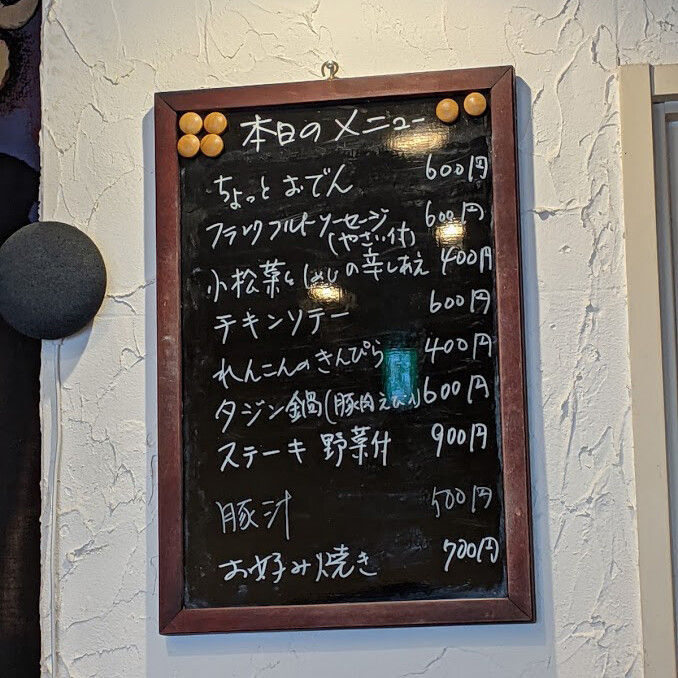 本日のメニュー
ちょっとおでん 600円
フランクフルトソーセージ 600円
(やさい付)
小松菜としめじの辛しあえ 400円
チキンソテー 600円
れんこんのきんぴら 400円
タジン鍋(豚肉えび入) 600円
ステーキ 野菜付 900円
豚汁 500円
お好み焼き 700円